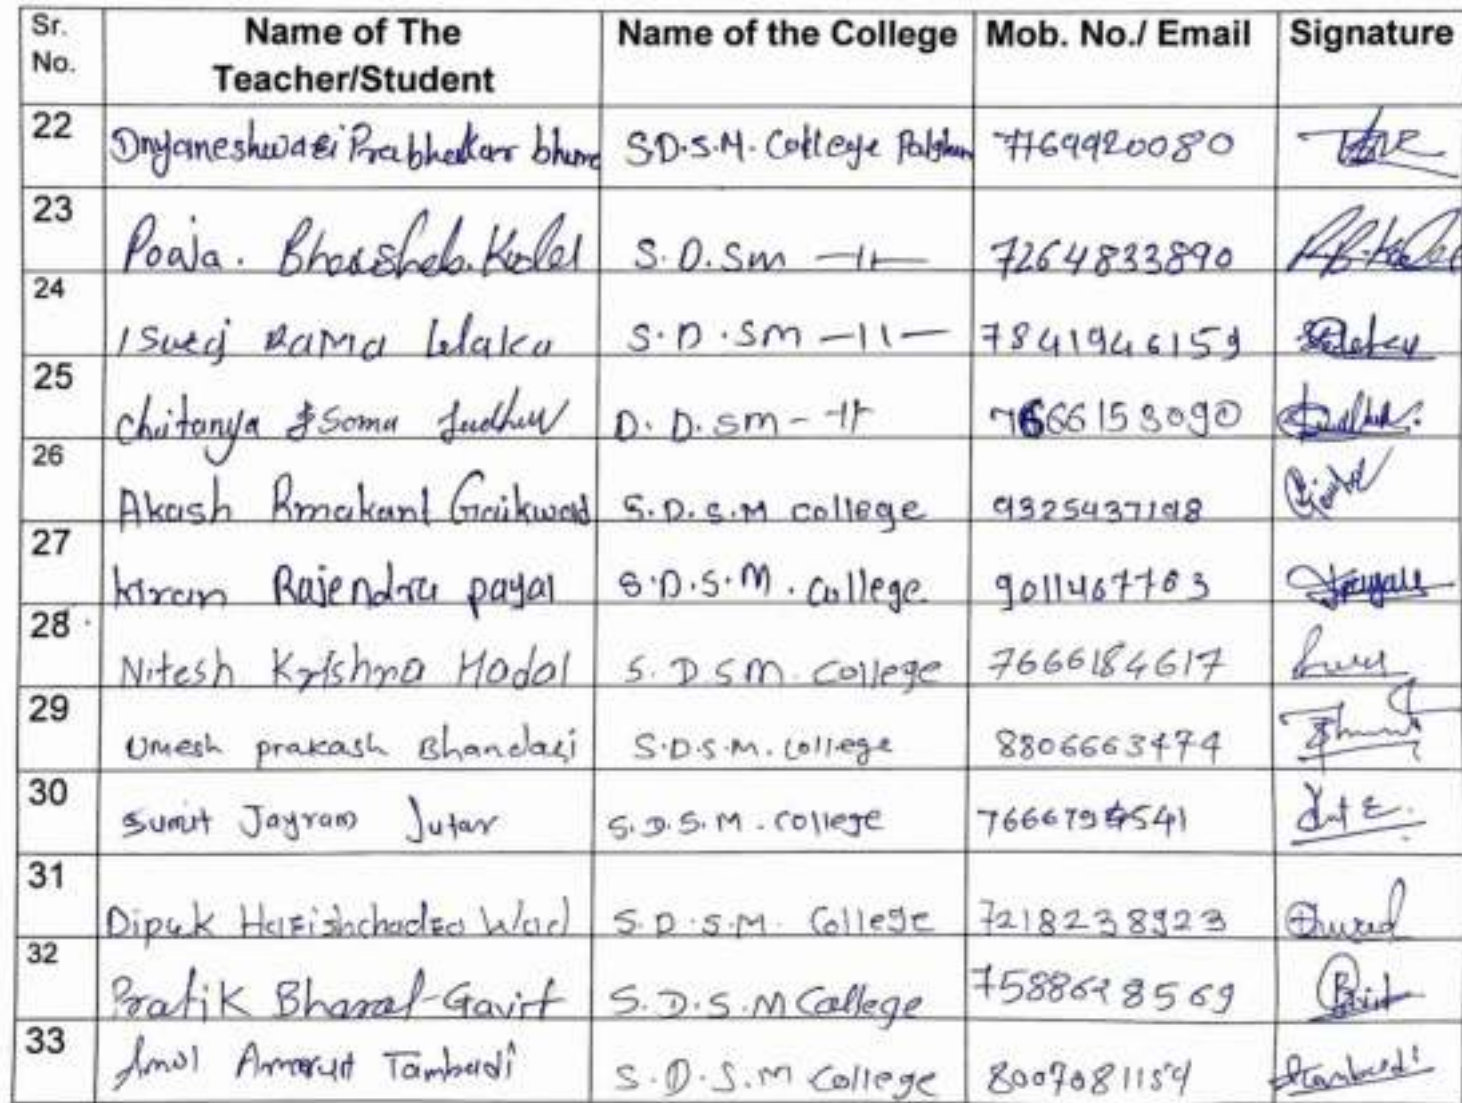 Sr. No. Name of The Teacher/Student Name of the College Mob. No./ Email Signature
22 Dnyaneshwari Prabhakar bhure S.D.S.M. College Palghar 7769920080
23 Pooja. Bhausheb. Kadel S.D.Sm —11— 7264833890
24 Suraj Rama Wlaka S.D.SM —11— 7841946159
25 Chitanya Soma D.D.SM - 11 7666153090
26 Akash Rmakant Gaikwad S.D.S.M college 9325437198
27 kiran Rajendra payal S.D.S.M. College. 9011467763
28 Nitesh Krishna Hadal S.D SM. College 7666184617
29 Umesh prakash Bhandari S.D.S.M. College 8806663474
30 Sumit Jayram Jutar S.D.S.M. College
31 Dipak Harishchadra Wad S.D.S.M. College 7218238923
32 Pratik Bharat Gavit S.D.S.M College 7588628569
33 Amol Amarut Tambadi S.D.S.M College 8007081154